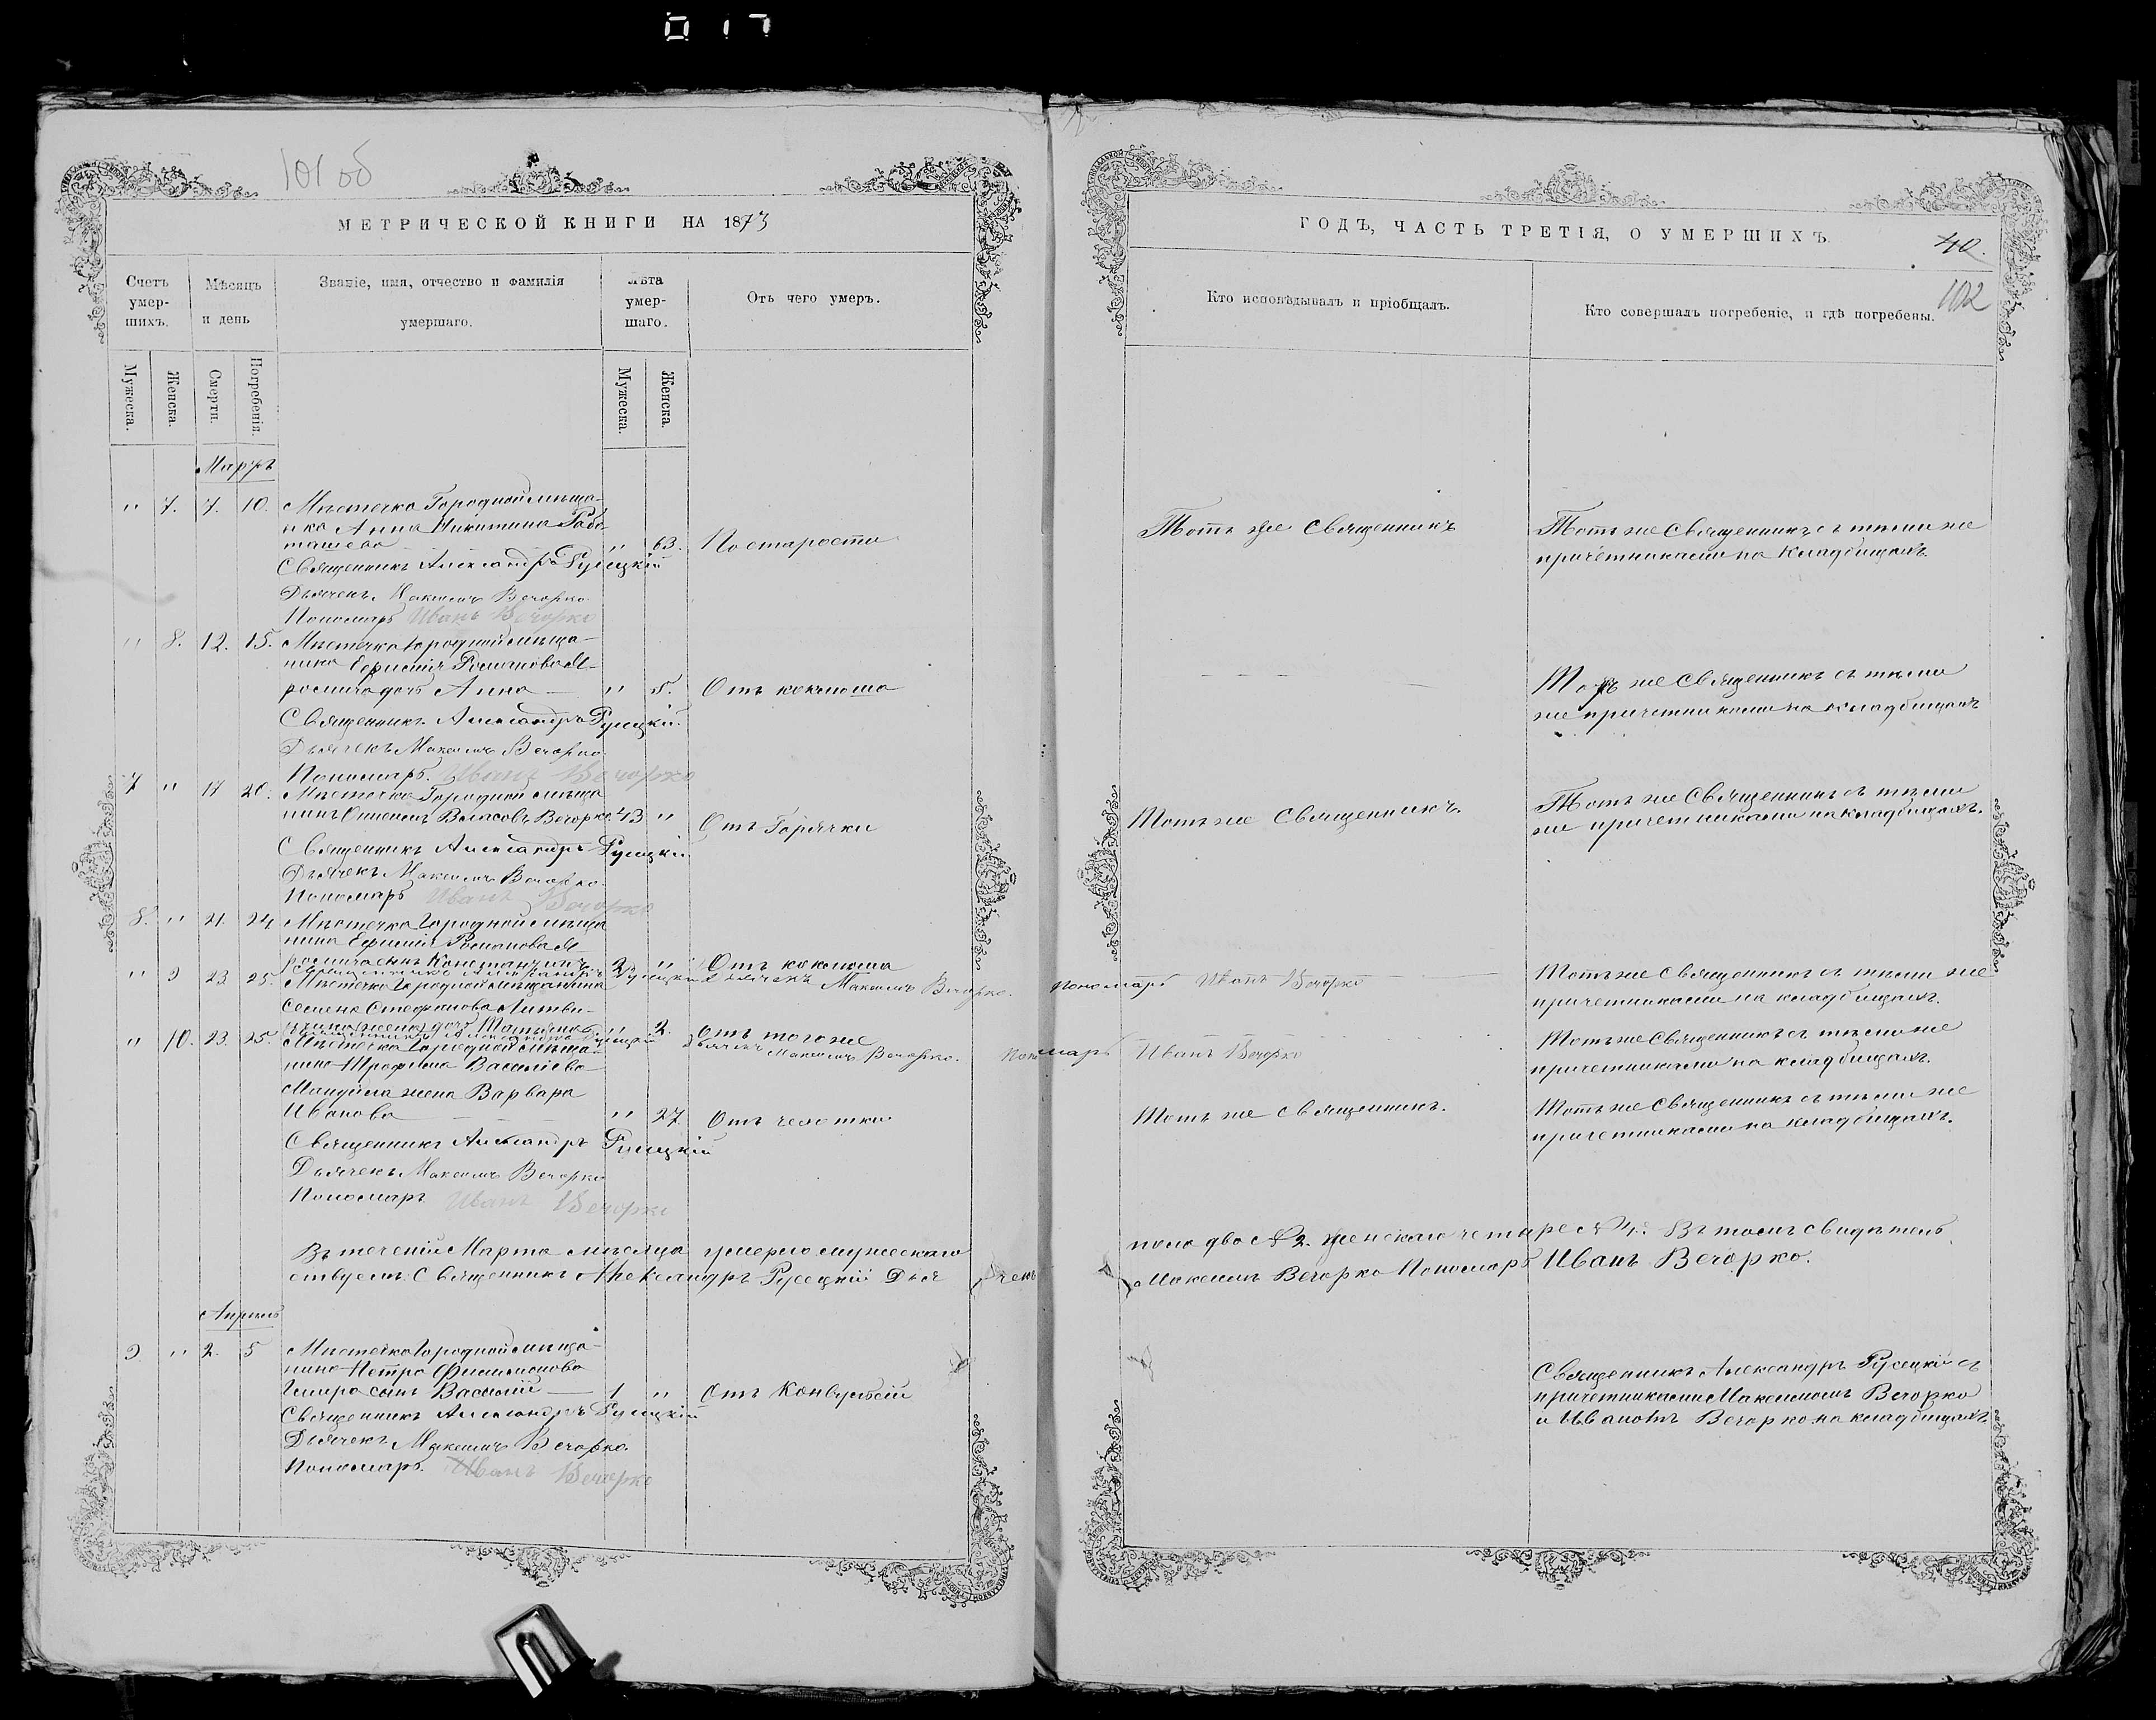 101 об
МЕТРИЧЕСКОЙ КНИГИ НА 1873
Счетъ умер-шихъ.
Мѣсяцъ и день
Званіе, имя, отчество и фамилія умершаго.
лѣта умер-шаго.
Отъ чего умеръ.
Мужеска.
Женска.
Смерти.
Погребенія.
Мужеска.
Женска.
Мартъ
" 7. 7. 10. Мѣстечка Городной мѣща-
нка Анна Никитина
" 63. По старости
Священникъ Александръ Русецкій
Дьячекъ Максимъ Вечорко
Пономарь Иванъ Вечорко
" 8. 12. 15. Мѣстечка Городной мѣща-
нина Ефимія Романова Я-
росмича дочь Анна — " 5. Отъ коклюша
Священникъ Александръ Русецкій.
Дьячекъ Максимъ Вечорко
Пономарь. Иванъ Вечорко
7 " 17 20. Мѣстечка Городной мѣща
нинъ Власовъ Вечорко 43 " Отъ Горячки
Священникъ Александръ Русецкій
Дьячекъ Максимъ Вечорко.
Пономарь Иванъ Вечорко
8. " 21 24 Мѣстечка Городной мѣща
нина Ефимія Романова Я-
росмича сынъ Константинъ 2 " Отъ коклюша
Священникъ Александръ Русецкій Дьячекъ Максимъ Вечорко. Пономарь Иванъ Вечорко
" 9 23 25. Мѣстечка Городной мѣщанина
Семена Стефанова Литви-
дочь " 2. Отъ того же
Священникъ Александръ Русецкій Дьячекъ Максимъ Вечорко. Пономарь Иванъ Вечорко
" 10. 23. 25. Мѣстечка Городной мѣща
нина Трофима Василіева
жена Варвара
Иванова — " 27 Отъ чахотки
Священникъ Александръ Русецкій
Дьячекъ Максимъ Вечорко
Пономарь Иванъ Вечорко
Въ теченіи Марта мѣсяца умерло мужескаго
ствуемъ: Священникъ Александръ Русецкій Дьячекъ
Апрѣль
9 " 2. 5 Мѣстечка Городной мѣща-
нина Петра Филимонова
сынъ Василій — 1 " Отъ Конвульсіи
Священникъ Александръ Русецкій
Дьячекъ Максимъ Вечорко.
Пономарь. Иванъ Вечорко
ГОДЪ, ЧАСТЬ ТРЕТІЯ, О УМЕРШИХЪ.
40.
102
Кто исповѣдывалъ и пріобщалъ.
Кто совершалъ погребеніе, и гдѣ погребены.
Тотъ же Священникъ
Тотъ же Священникъ съ тѣми же
причетниками на кладбищахъ.
Тотъ же Священникъ съ тѣми
же причетниками на кладбищахъ
Тотъ же Священникъ.
Тотъ же Священникъ съ тѣми
же причетниками на кладбищахъ.
Тотъ же Священникъ съ тѣми же
причетниками на кладбищахъ.
Тотъ же Священникъ съ тѣми же
причетниками на кладбищахъ.
Тотъ же Священникъ.
Тотъ же Священникъ съ тѣми же
причетниками на кладбищахъ.
пола два № 2. женскаго четыре № 4. Въ томъ свидѣтель
Максимъ Вечорко Пономарь Иванъ Вечорко.
Священникъ Александръ Русецкій съ
причетниками Максимомъ Вечорко
и Иваномъ Вечорко на кладбищахъ.